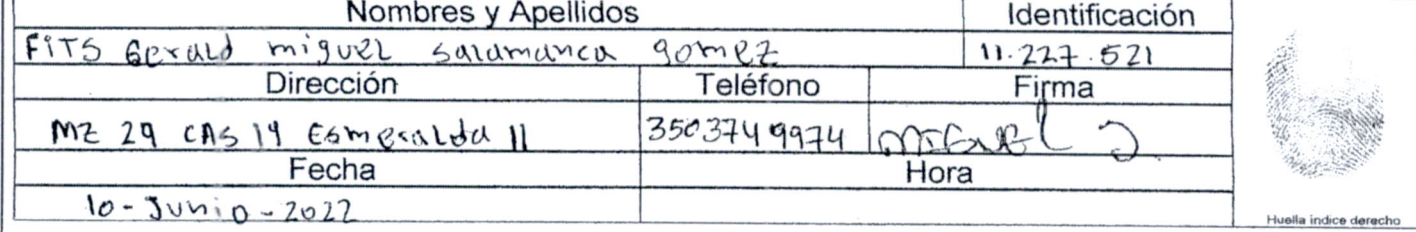 Nombres y Apellidos Identificación
FiTS Gerald miguel salamanca gomez 11.227.521
Dirección Teléfono Firma
MZ 29 CAS 14 Esmeralda II 3503749974 MIGUEL S
Fecha Hora
10-Junio-2022
Huella indice derecho